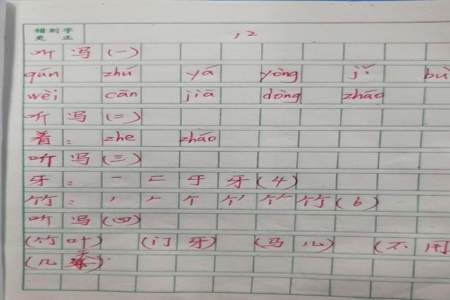 错别字
更正
12
听写(一)
qún zhú yá yòng jǐ bù
wèi cān jiā dòng zháo
听写(二)
着: zhe zháo
听写(三)
牙: 一 ㄷ 于 牙(4)
竹: 丿 𠂉 个 竹(6)
听写(四)
(竹叶) (门牙) (马儿) (不用)
(几